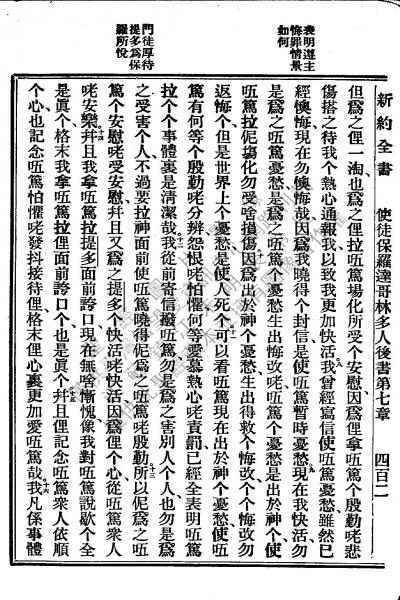 表明遵主
悔罪情景
如何
門徒厚待
提多爲保
羅所悅
新約全書 使徒保羅達哥林多人後書第七章 四百二
但爲之俚一淘、也爲之俚拉㕶篤場化所受个安慰因爲俚拿㕶篤个殷勤咾悲
傷搭之待我个熱心通報我以致我更加快活我曾經寫信使㕶篤憂愁雖然已
經懊悔現在勿懊悔哉因爲我曉得个封信是使㕶篤暫時憂愁現在我快活勿
是爲之㕶篤憂愁是爲之㕶篤个憂愁生出悔改咾㕶篤个憂愁是出於神个使
㕶篤拉伲場化勿受啥損傷因爲出於神个憂愁生出得救个悔改、个个悔改勿
返悔个但是世界上个憂愁是使人死个可以看㕶篤現在出於神个憂愁使㕶
篤有何等个殷勤咾分辨怨恨咾怕懼何等愛慕熱心咾責罰已經全表明㕶篤
拉个个事體裏是清潔哉我從前寄信撥㕶篤勿是爲之害別人个人也勿是爲
之受害个人不過要拉神面前使㕶篤曉得伲爲之㕶篤咾殷勤所以伲爲之㕶
篤个安慰咾受安慰幷且又爲之提多个快活咾快活因爲俚个心從㕶篤衆人
咾安樂幷且我拿㕶篤拉提多面前誇口現在無啥慚愧像我對㕶篤說歇个全
是眞个格末我拿㕶篤拉俚面前誇口个也是眞个幷且俚記念㕶篤衆人依順
个心也記念㕶篤怕懼咾發抖接待俚格末俚心裏更加愛㕶篤哉我凡係事體